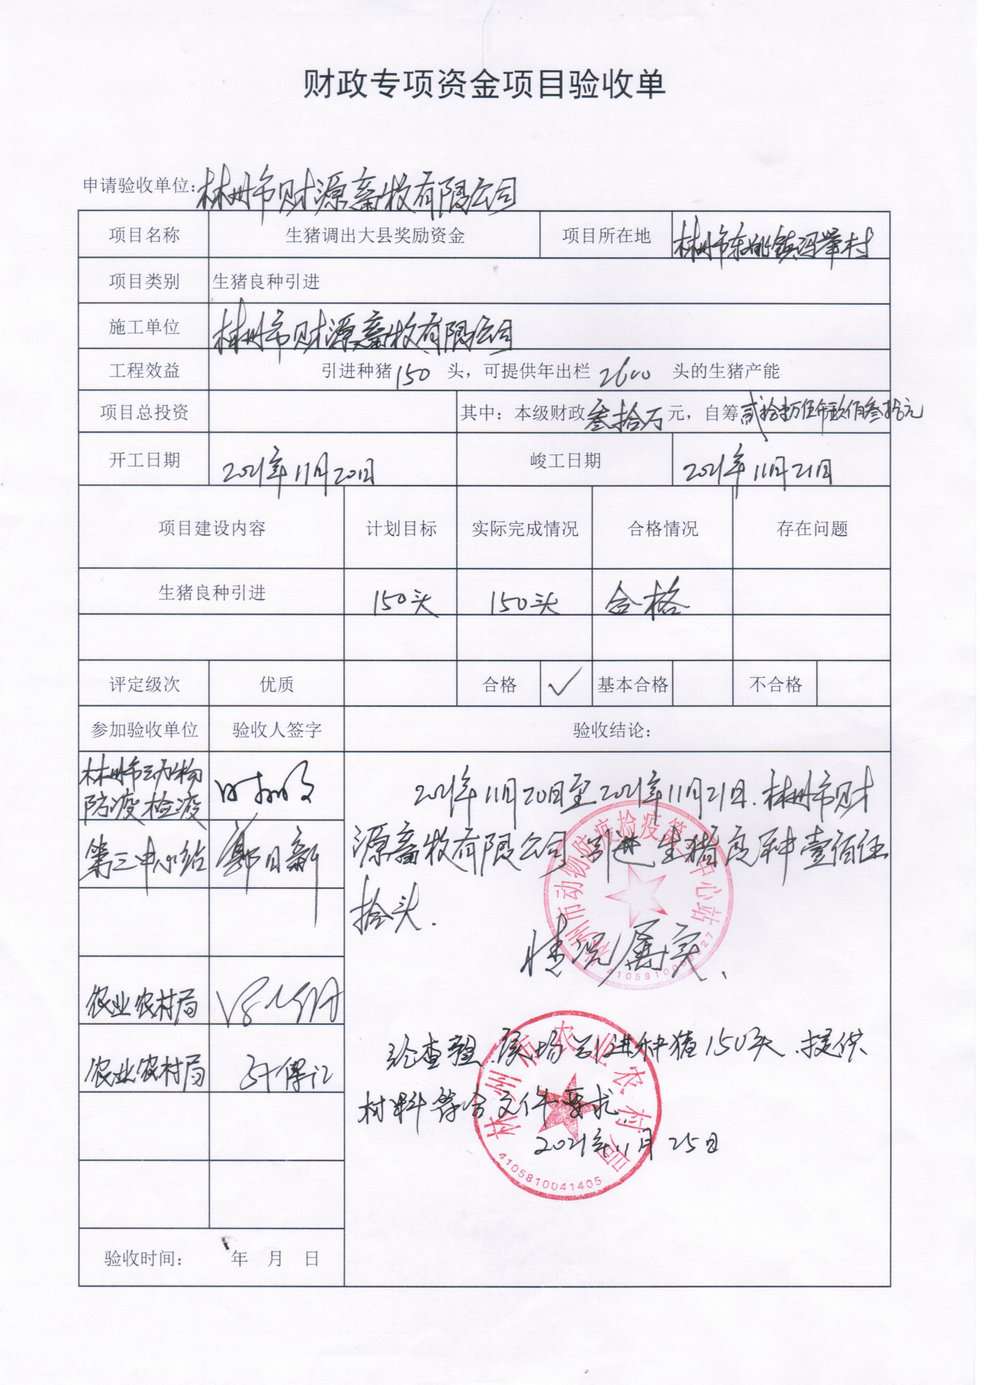 财政专项资金项目验收单
申请验收单位:林州市财源畜牧有限公司
项目名称 生猪调出大县奖励资金 项目所在地 林州市东姚镇冯举村
项目类别 生猪良种引进
施工单位 林州市财源畜牧有限公司
工程效益 引进种猪150头，可提供年出栏2600头的生猪产能
项目总投资 其中：本级财政叁拾万元，自筹贰拾捌万伍仟玖佰叁拾元
开工日期 2021年11月20日 峻工日期 2021年11月21日
项目建设内容 计划目标 实际完成情况 合格情况 存在问题
生猪良种引进 150头 150头 合格
评定级次 优质 合格 ✓ 基本合格 不合格
参加验收单位 验收人签字 验收结论：
林州市动物
防疫检疫
第三中心站 郭日新
2021年11月20日至2021年11月21日.林州市财
源畜牧有限公司引进生猪良种壹佰伍
拾头.
情况属实、
农业农村局
农业农村局
经查验.该场引进种猪150头.提供
材料符合文件要求
2021年11月25日
林州市农业农村局
4105810041405
验收时间： 年 月 日